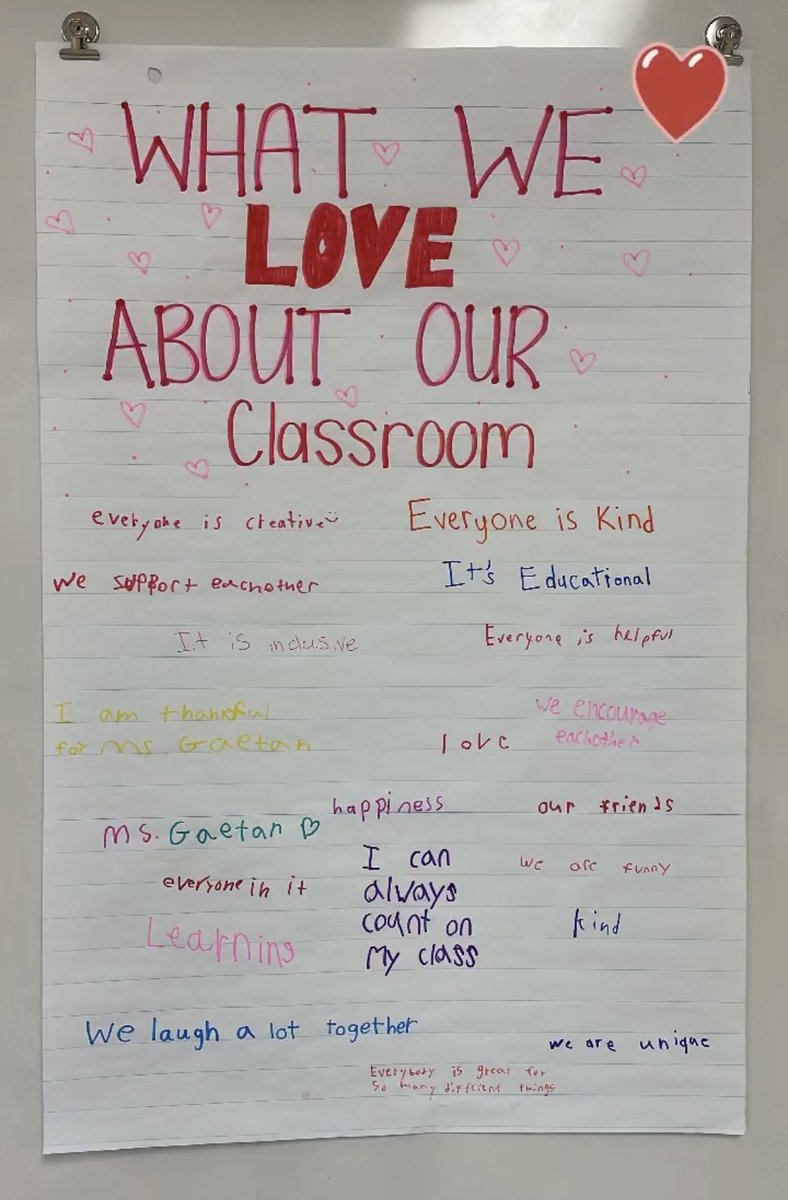 WHAT WE
LOVE
ABOUT OUR
Classroom
everyone is creative
Everyone is Kind
we support eachother
It's Educational
It is inclusive
Everyone is helpful
I am thankful
for ms. Gaetan
we encourage
eachother
love
happiness
our friends
ms. Gaetan
I can
always
count on
My class
we are funny
everyone in it
kind
Learning
We laugh a lot together
we are unique
Everybody is great for
So many different things